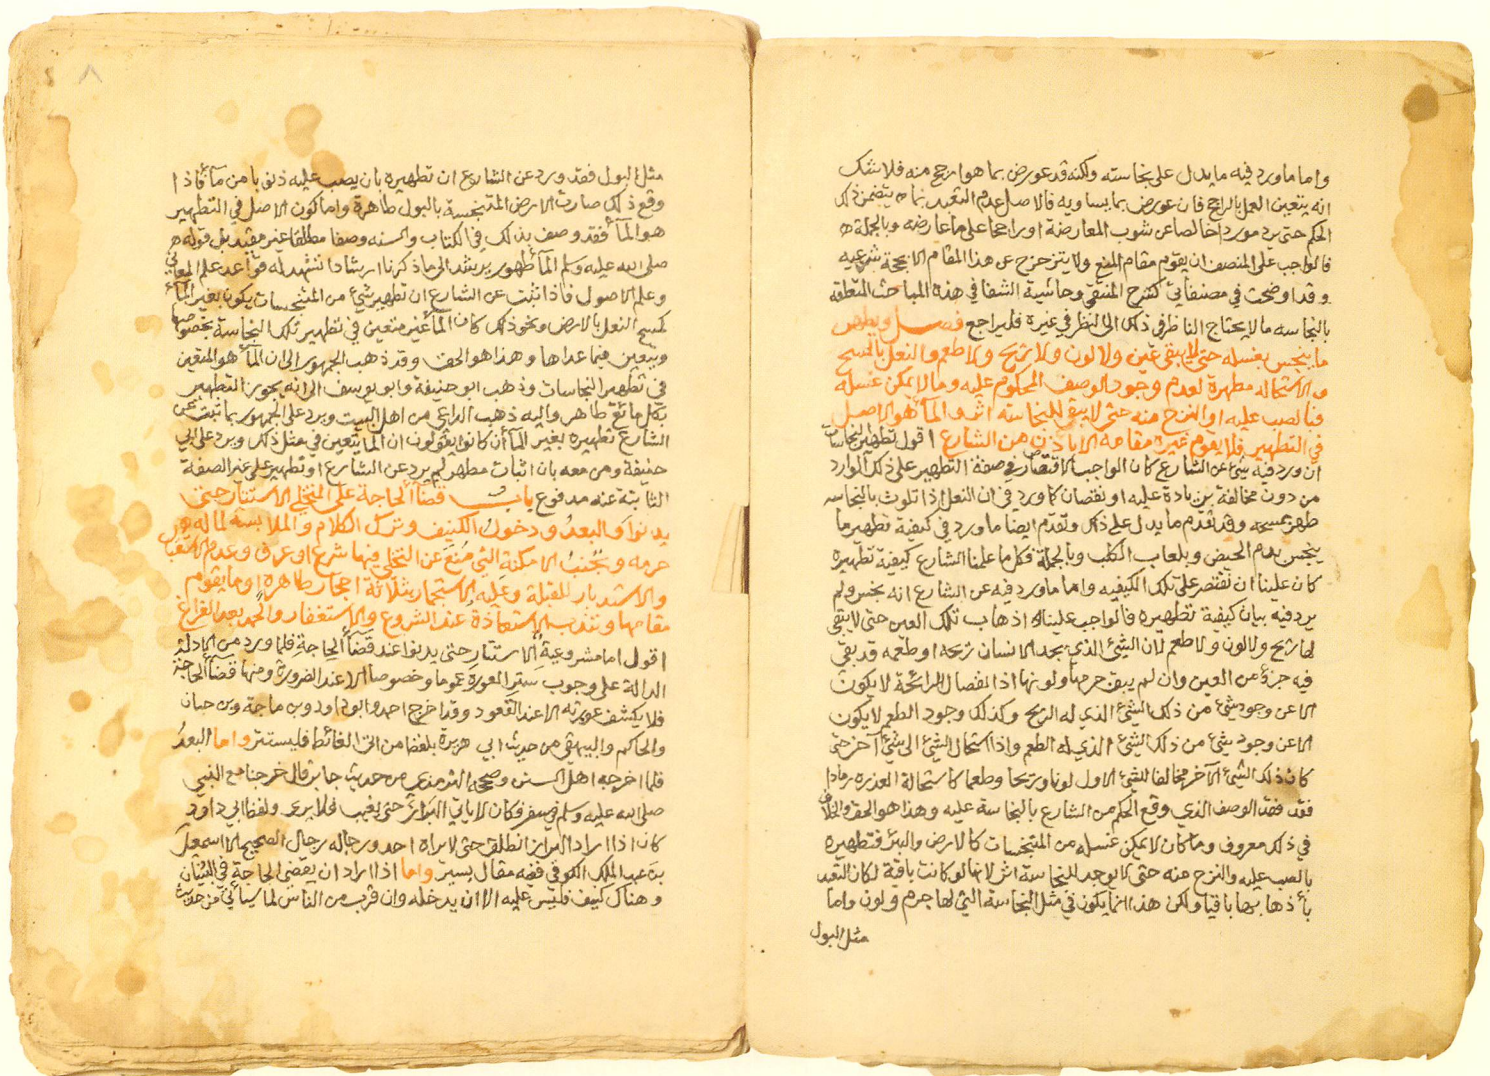 واما ما ورد فيه ما يدل على نجاسته ولكنه قد عورض بما هو ارجح منه فلا شك
انه يتعين العمل بالراجح فان عورض بما يساويه فالاصل عدم التعبد بما يتضمن ذلك
الحكم حتى يرد موردا خالصا عن شوب المعارضة او راجحا على ما عارضه وبالجملة
فالواجب على المنصف ان يقوم مقام المنع ولا يتزحزح عن هذا المقام الا بحجة شرعيه
وقد اوضحت في مصنفاتي كشرح المنتقى وحاشية الشفا في هذه المباحث المتعلقه
بالنجاسه ما لا يحتاج الناظر في ذلك الى النظر في غيره فليراجع فصل ويطهر
ما ينجس بغسله حتى لا يبقى عين ولا لون ولا ريح ولا طعم والنعل بالمسح
والاستحاله مطهرة لعدم وجود الوصف المحكوم عليه وما لا يمكن غسله
فبالصب عليه او النزح منه حتى لا يبقى للنجاسة اثر والمأ هو الاصل
في التطهير فلا يقوم غيره مقامه الا باذن من الشارع اقول تطهير النجاسات
ان ورد فيه شئ عن الشارع كان الواجب الاقتصار في صفة التطهير على ذلك الوارد
من دون مخالفة بزيادة عليه او نقصان كما ورد في ان النعل اذا تلوث بالنجاسه
طهر بمسحه وقد تقدم ما يدل على ذلك وتقدم ايضا ما ورد في كيفية تطهير ما
ينجس بدم الحيض وبلعاب الكلب وبالجملة فكل ما علمنا الشارع كيفية تطهيره
كان علينا ان نقتصر على تلك الكيفيه واما ما ورد فيه عن الشارع انه نجس ولم
يرد فيه بيان كيفية تطهيره فالواجب علينا اذهاب تلك العين حتى لا يبقى
لها ريح ولا لون ولا طعم لان الشئ الذي يجد الانسان ريحه او طعمه قد بقي
فيه جزء من العين وان لم يبق جرمها ولونها اذ انفصال الرائحة لا يكون
الا عن وجود شئ من ذلك الشئ الذي له الريح وكذلك وجود الطعم لا يكون
الا عن وجود شئ من ذلك الشئ الذي له الطعم واذا استحال الشئ الى شئ آخر حتى
كان ذلك الشئ الآخر مخالفا للشئ الاول لونا وريحا وطعما كاستحالة العذره رمادا
فقد فقد الوصف الذي وقع الحكم من الشارع بالنجاسة عليه وهذا هو الحق والخلاف
في ذلك معروف وما كان لا يمكن غسله من المتنجسات كالارض والبئر فتطهيره
بالصب عليه والنزح منه حتى لا يوجد للنجاسة اثر لانها لو كانت باقية لكان التعبد
باذهابها باقيا ولكن هذا انما يكون في مثل النجاسة التي لها جرم ولون واما
مثل البول
مثل البول فقد ورد عن الشارع ان تطهيره بان يصب عليه ذنوبا من مأ فاذا
وقع ذلك صارت الارض المتنجسة بالبول طاهرة واما كون الاصل في التطهير
هو المأ فقد وصف بذلك في الكتاب والسنه وصفا مطلقا غير مقيد بل قوله
صلى الله عليه وسلم المأ طهور يرشد الى ما ذكرنا ارشادا تشهد له قواعد علم المعاني
وعلم الاصول فاذا ثبت عن الشارع ان تطهير شئ من المتنجسات يكون بغير المأ
كمسح النعل بالارض ونحو ذلك كان المأ غير متعين في تطهير تلك النجاسة بخصوصها
ويتعين فيما عداها وهذا هو الحق وقد ذهب الجمهور الى ان المأ هو المتعين
في تطهير النجاسات وذهب ابو حنيفة وابو يوسف الى انه يجوز التطهير
بكل مائع طاهر واليه ذهب الداعي من اهل البيت ويرد على الجمهور بما ثبت عن
الشارع تطهيره بغير المأ ان كانوا يقولون ان المأ يتعين في مثل ذلك ويرد على ابي
حنيفة ومن معه بان اثبات مطهر لم يرد عن الشارع او تطهير على غير الصفة
الثابتة عنه مدفوع باب قضأ الحاجة على المتخلي الاستتار حتى
يدنوا والبعد ودخول الكنيف وترك الكلام والملابسة لما له
حرمه وتجنب الامكنة التي منع عن التخلي فيها شرع او عرف وعدم الاستقبال
والاستدبار للقبلة وعليه الاستجمار بثلاثة احجار طاهرة او ما يقوم
مقامها وتندب الاستعاذة عند الشروع والاستغفار والحمد بعد الفراغ
اقول اما مشروعية الاستتار حتى يدنوا عند قضأ الحاجة فلما ورد من الادلة
الدالة على وجوب ستر العورة عموما وخصوصا الا عند الضرورة ومنها قضأ الحاجة
فلا يكشف عورته الا عند القعود وقد اخرج احمد وابو داود وبن ماجة وبن حبان
والحاكم والبيهقي من حديث ابي هريرة بلفظ من اتى الغائط فليستتر واما البعد
فلما اخرجه اهل السنن وصححه الترمذي من حديث جابر قال خرجنا مع النبي
صلى الله عليه وسلم في سفر فكان لا ياتي البراز حتى يغيب فلا يرى ولفظ ابي داود
كان اذا اراد البراز انطلق حتى لا يراه احد ورجاله رجال الصحيح الا اسمعيل
بن عبد الملك الكوفي ففيه مقال يسير واما اذا اراد ان يقضي الحاجة في البنيان
وهناك كنيف فليس عليه الا ان يدخله وان قرب من الناس لما سيأتي من حديث